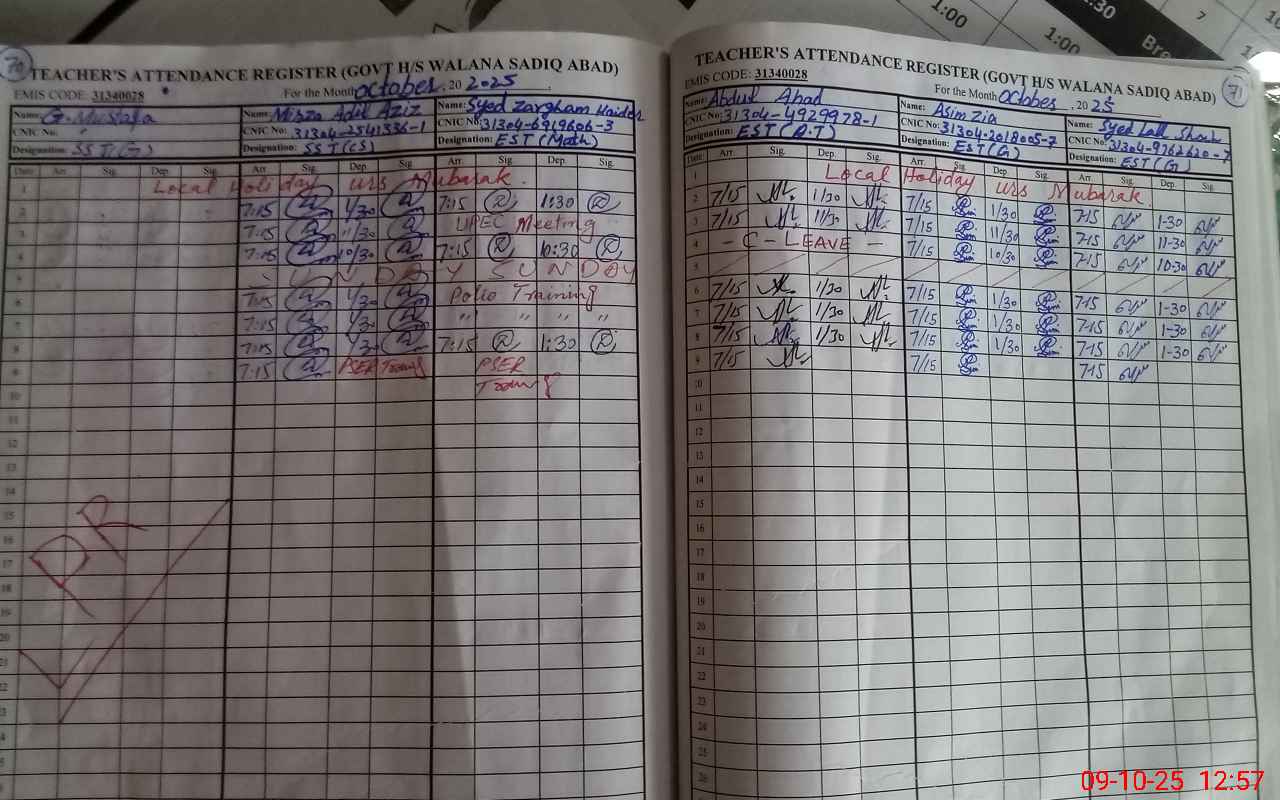 1:00
1:30
7
1:00
Bre
70
TEACHER'S ATTENDANCE REGISTER (GOVT H/S WALANA SADIQ ABAD)
EMIS CODE: 31340028
For the Month October, 20 2025.
Name: G. Mustafa
CNIC No:
Designation: SST(G)
Name: Mirza Adil Aziz
CNIC No: 31304-2541336-1
Designation: SST(CS)
Name: Syed Zargham Haider
CNIC No: 31304-6919606-3
Designation: EST(Math)
Date Arr. Sig. Dep. Sig. Arr. Sig. Dep. Sig. Arr. Sig. Dep. Sig.
1 Local Holiday urs Mubarak.
2 7:15 1/30 7:15 1:30
3 7:15 11/30 UPEC Meeting
4 7:15 10/30 7:15 10:30
SUNDAY SUNDAY
6 7:15 1/30 Polio Training
7 7:15 1/30 " " " "
8 7:15 1/30 7:15 1:30
9 7:15 PSER Training PSER Training
10
11
12
13
14
15
16
17
18
19
20
21
22
PR
TEACHER'S ATTENDANCE REGISTER (GOVT H/S WALANA SADIQ ABAD)
71
EMIS CODE: 31340028
For the Month October, 20 25
Name: Abdul Ahad
CNIC No: 31304-4929978-1
Designation: EST(A.T)
Name: Asim Zia
CNIC No: 31304-2018005-7
Designation: EST(G)
Name: Syed Lall Shah
31304-9262620-7
Designation: EST(G)
Date Arr. Sig. Dep. Sig. Arr. Sig. Dep. Sig. Arr. Sig. Dep. Sig.
1 Local Holiday urs Mubarak.
2 7/15 1/30 7/15 1/30 7-15 1-30
3 7/15 11/30 7/15 11/30 7-15 11-30
4 - C - LEAVE - 7/15 10/30 7-15 10-30
5
6 7/15 1/30 7/15 1/30 7-15 1-30
7 7/15 1/30 7/15 1/30 7-15 1-30
8 7/15 1/30 7/15 1/30 7-15 1-30
9 7/15 7/15 7-15
10
11
12
13
14
15
16
17
18
19
20
21
22
23
24
25
26
09-10-25 12:57